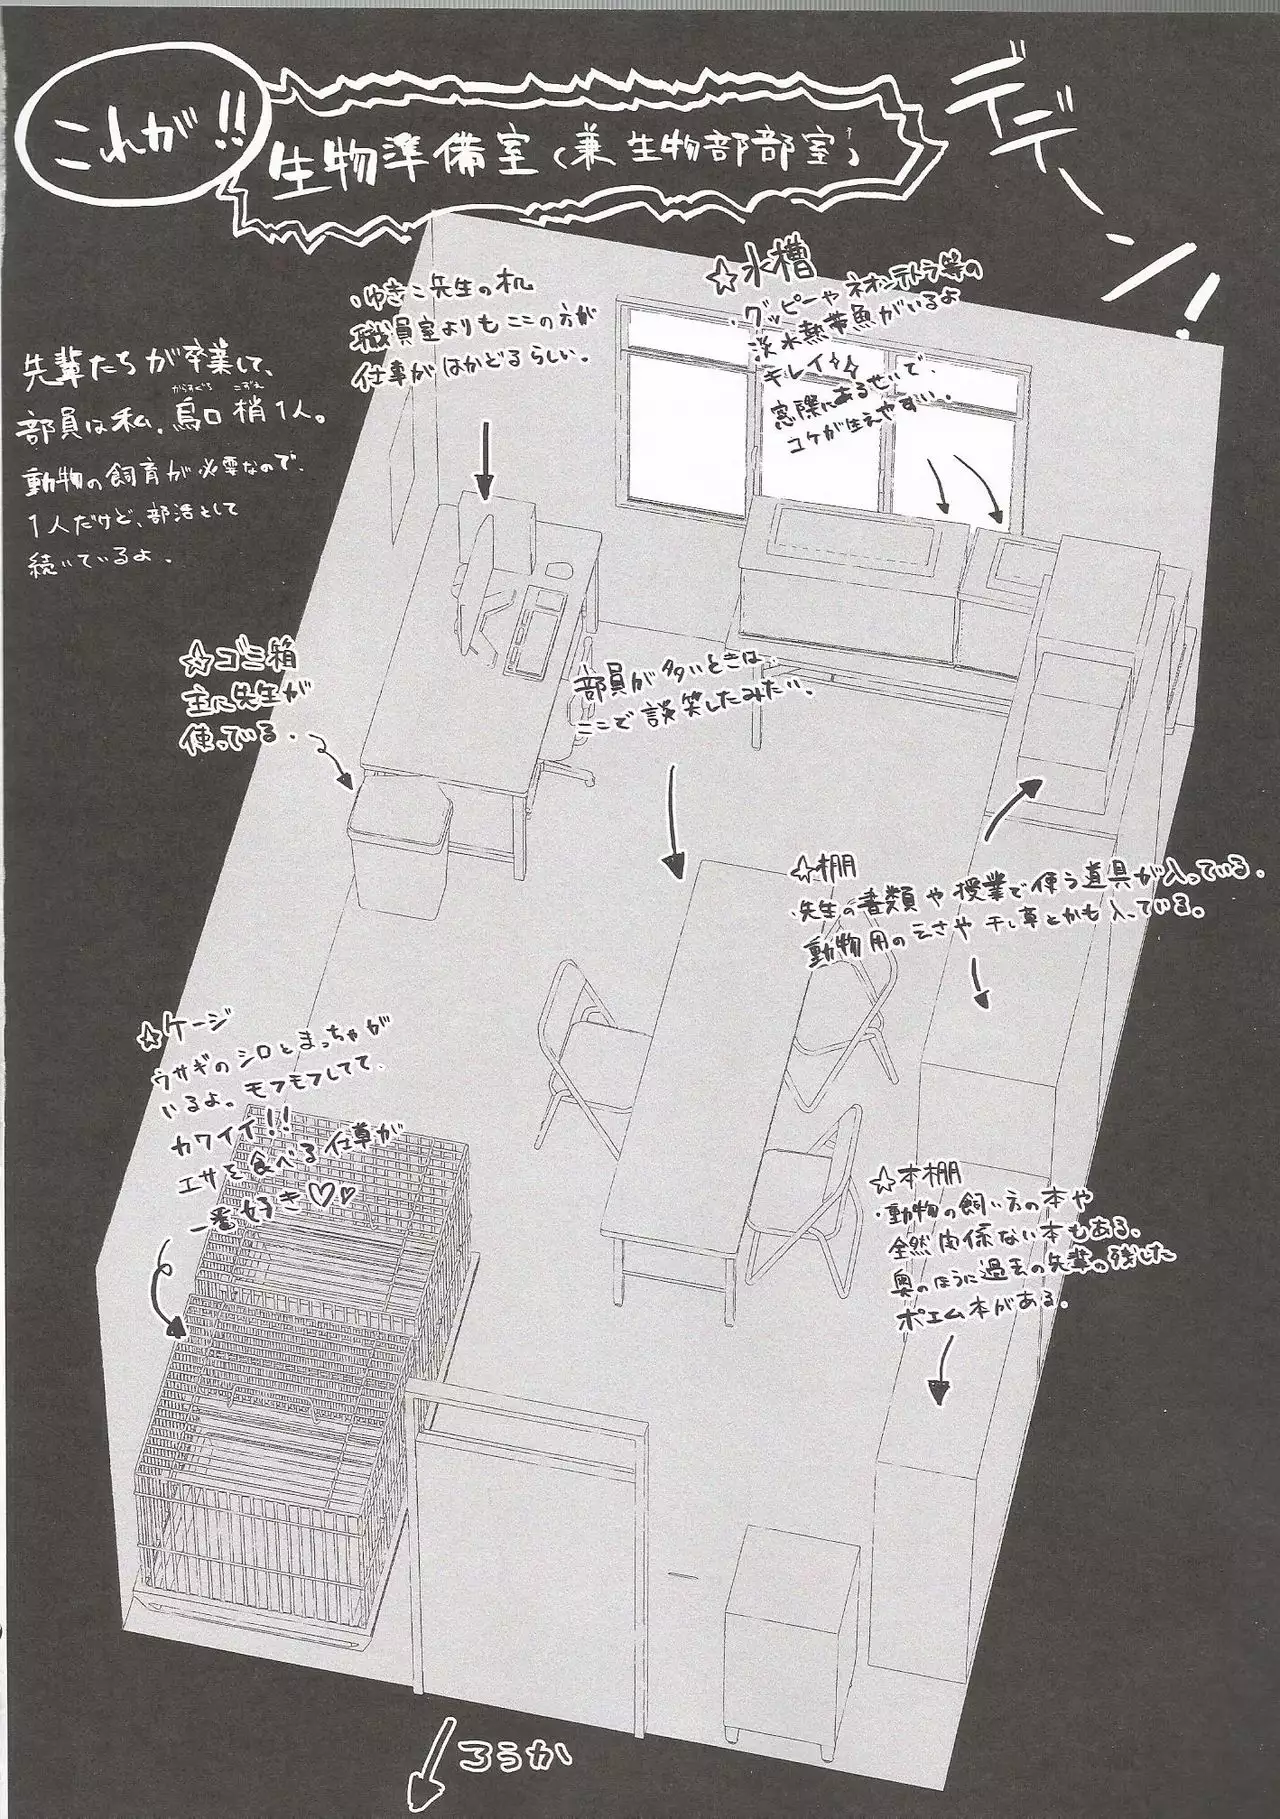 これが!!
生物準備室(兼 生物部部室)
デデーン!
先輩たちが卒業して、
部員は私、烏口 梢 1人。
からすぐち こずえ
動物の飼育が必要なので、
1人だけど、部活として
続いているよ。
・ゆきこ先生の机
職員室よりもここの方が
仕事がはかどるらしい。
☆水槽
・グッピーやネオンテトラ等の
淡水熱帯魚がいるよ
キレイ
窓際にあるせいで、
コケが生えやすい。
☆ゴミ箱
主に先生が
使っている。
部員が多いときは
ここで談笑したみたい。
☆棚
・先生の書類や授業で使う道具が入っている。
動物用のえさや干し草とかも入っている。
☆ケージ
ウサギのシロとまっちゃが
いるよ。モフモフしてて
カワイイ!!
エサを食べる仕草が
一番好き♡♡
☆本棚
・動物の飼い方の本や
全然関係ない本もある。
奥のほうに過去の先輩の残した
ポエム本がある。
ろうか